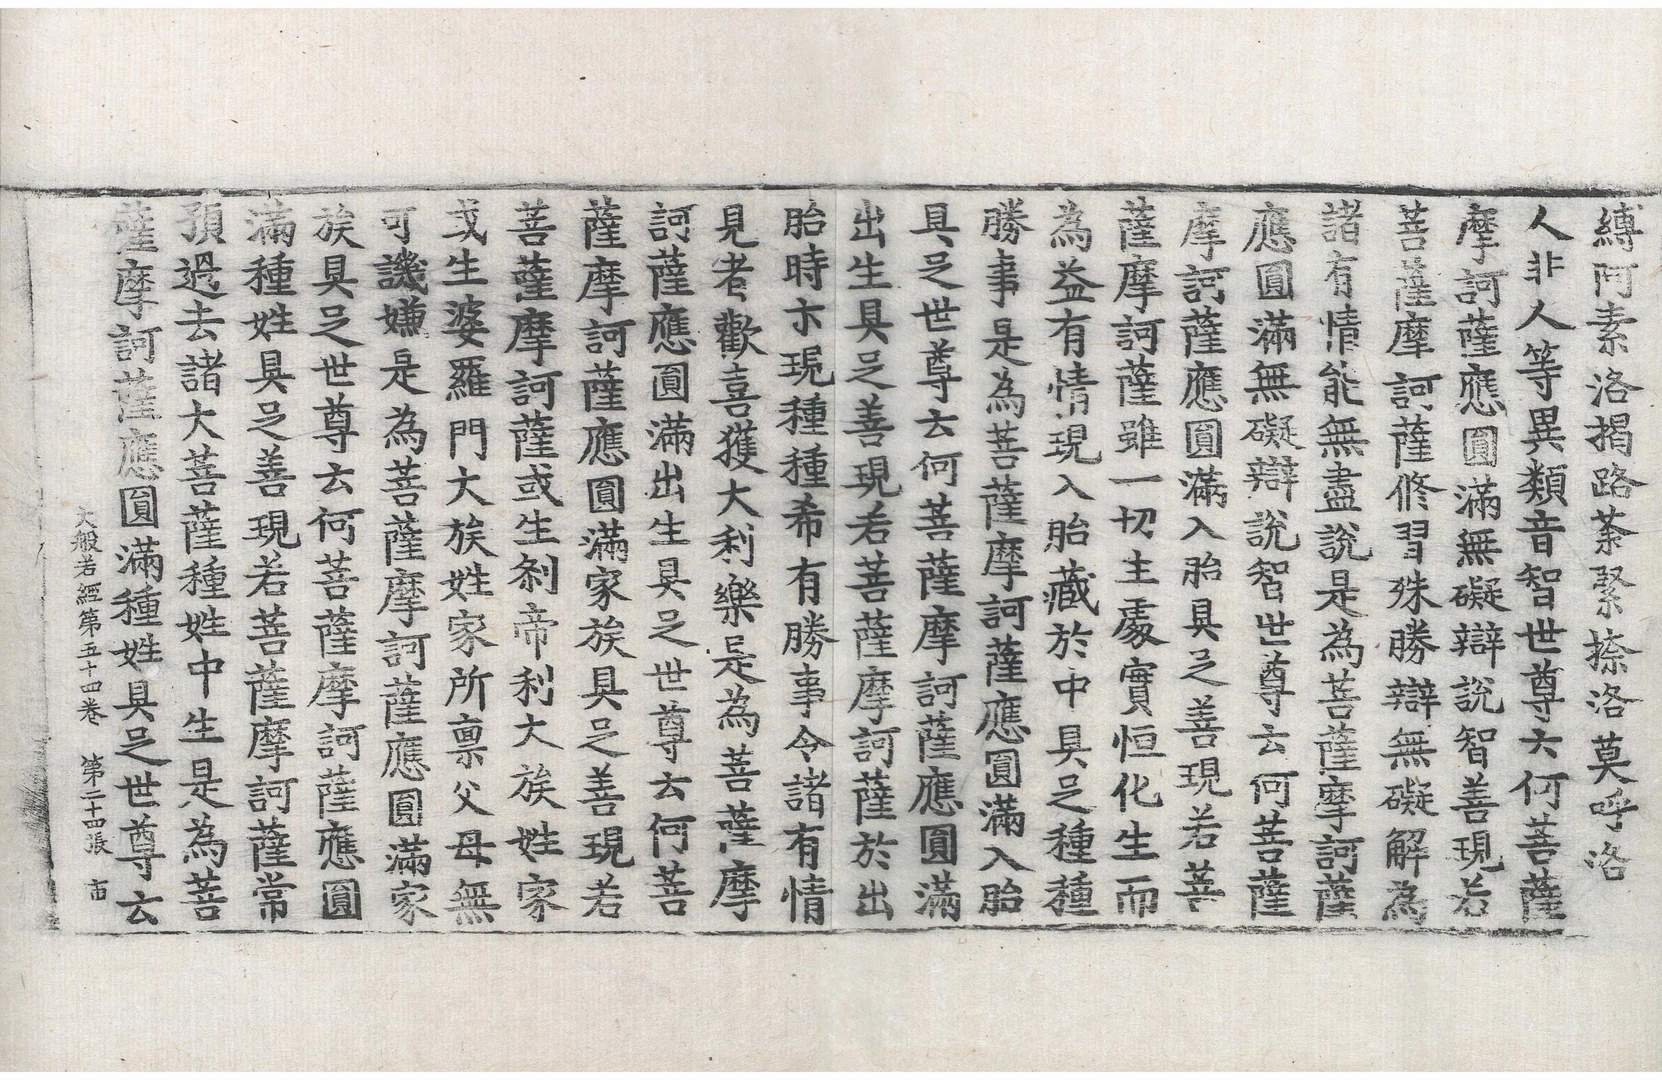 縛阿素洛揭路荼緊捺洛莫呼洛
人非人等異類音智世尊云何菩薩
摩訶薩應圓滿無礙辯說智善現若
菩薩摩訶薩修習殊勝辯無礙解為
諸有情能無盡說是為菩薩摩訶薩
應圓滿無礙辯說智世尊云何菩薩
摩訶薩應圓滿入胎具足善現若菩
薩摩訶薩雖一切生處實恒化生而
為益有情現入胎藏於中具足種種
勝事是為菩薩摩訶薩應圓滿入胎
具足世尊云何菩薩摩訶薩應圓滿
出生具足善現若菩薩摩訶薩於出
胎時示現種種希有勝事令諸有情
見者歡喜獲大利樂是為菩薩摩
訶薩應圓滿出生具足世尊云何菩
薩摩訶薩應圓滿家族具足善現若
菩薩摩訶薩或生剎帝利大族姓家
或生婆羅門大族姓家所稟父母無
可譏嫌是為菩薩摩訶薩應圓滿家
族具足世尊云何菩薩摩訶薩應圓
滿種姓具足善現若菩薩摩訶薩常
預過去諸大菩薩種姓中生是為菩
薩摩訶薩應圓滿種姓具足世尊云
大般若經第五十四卷 第二十四張 市